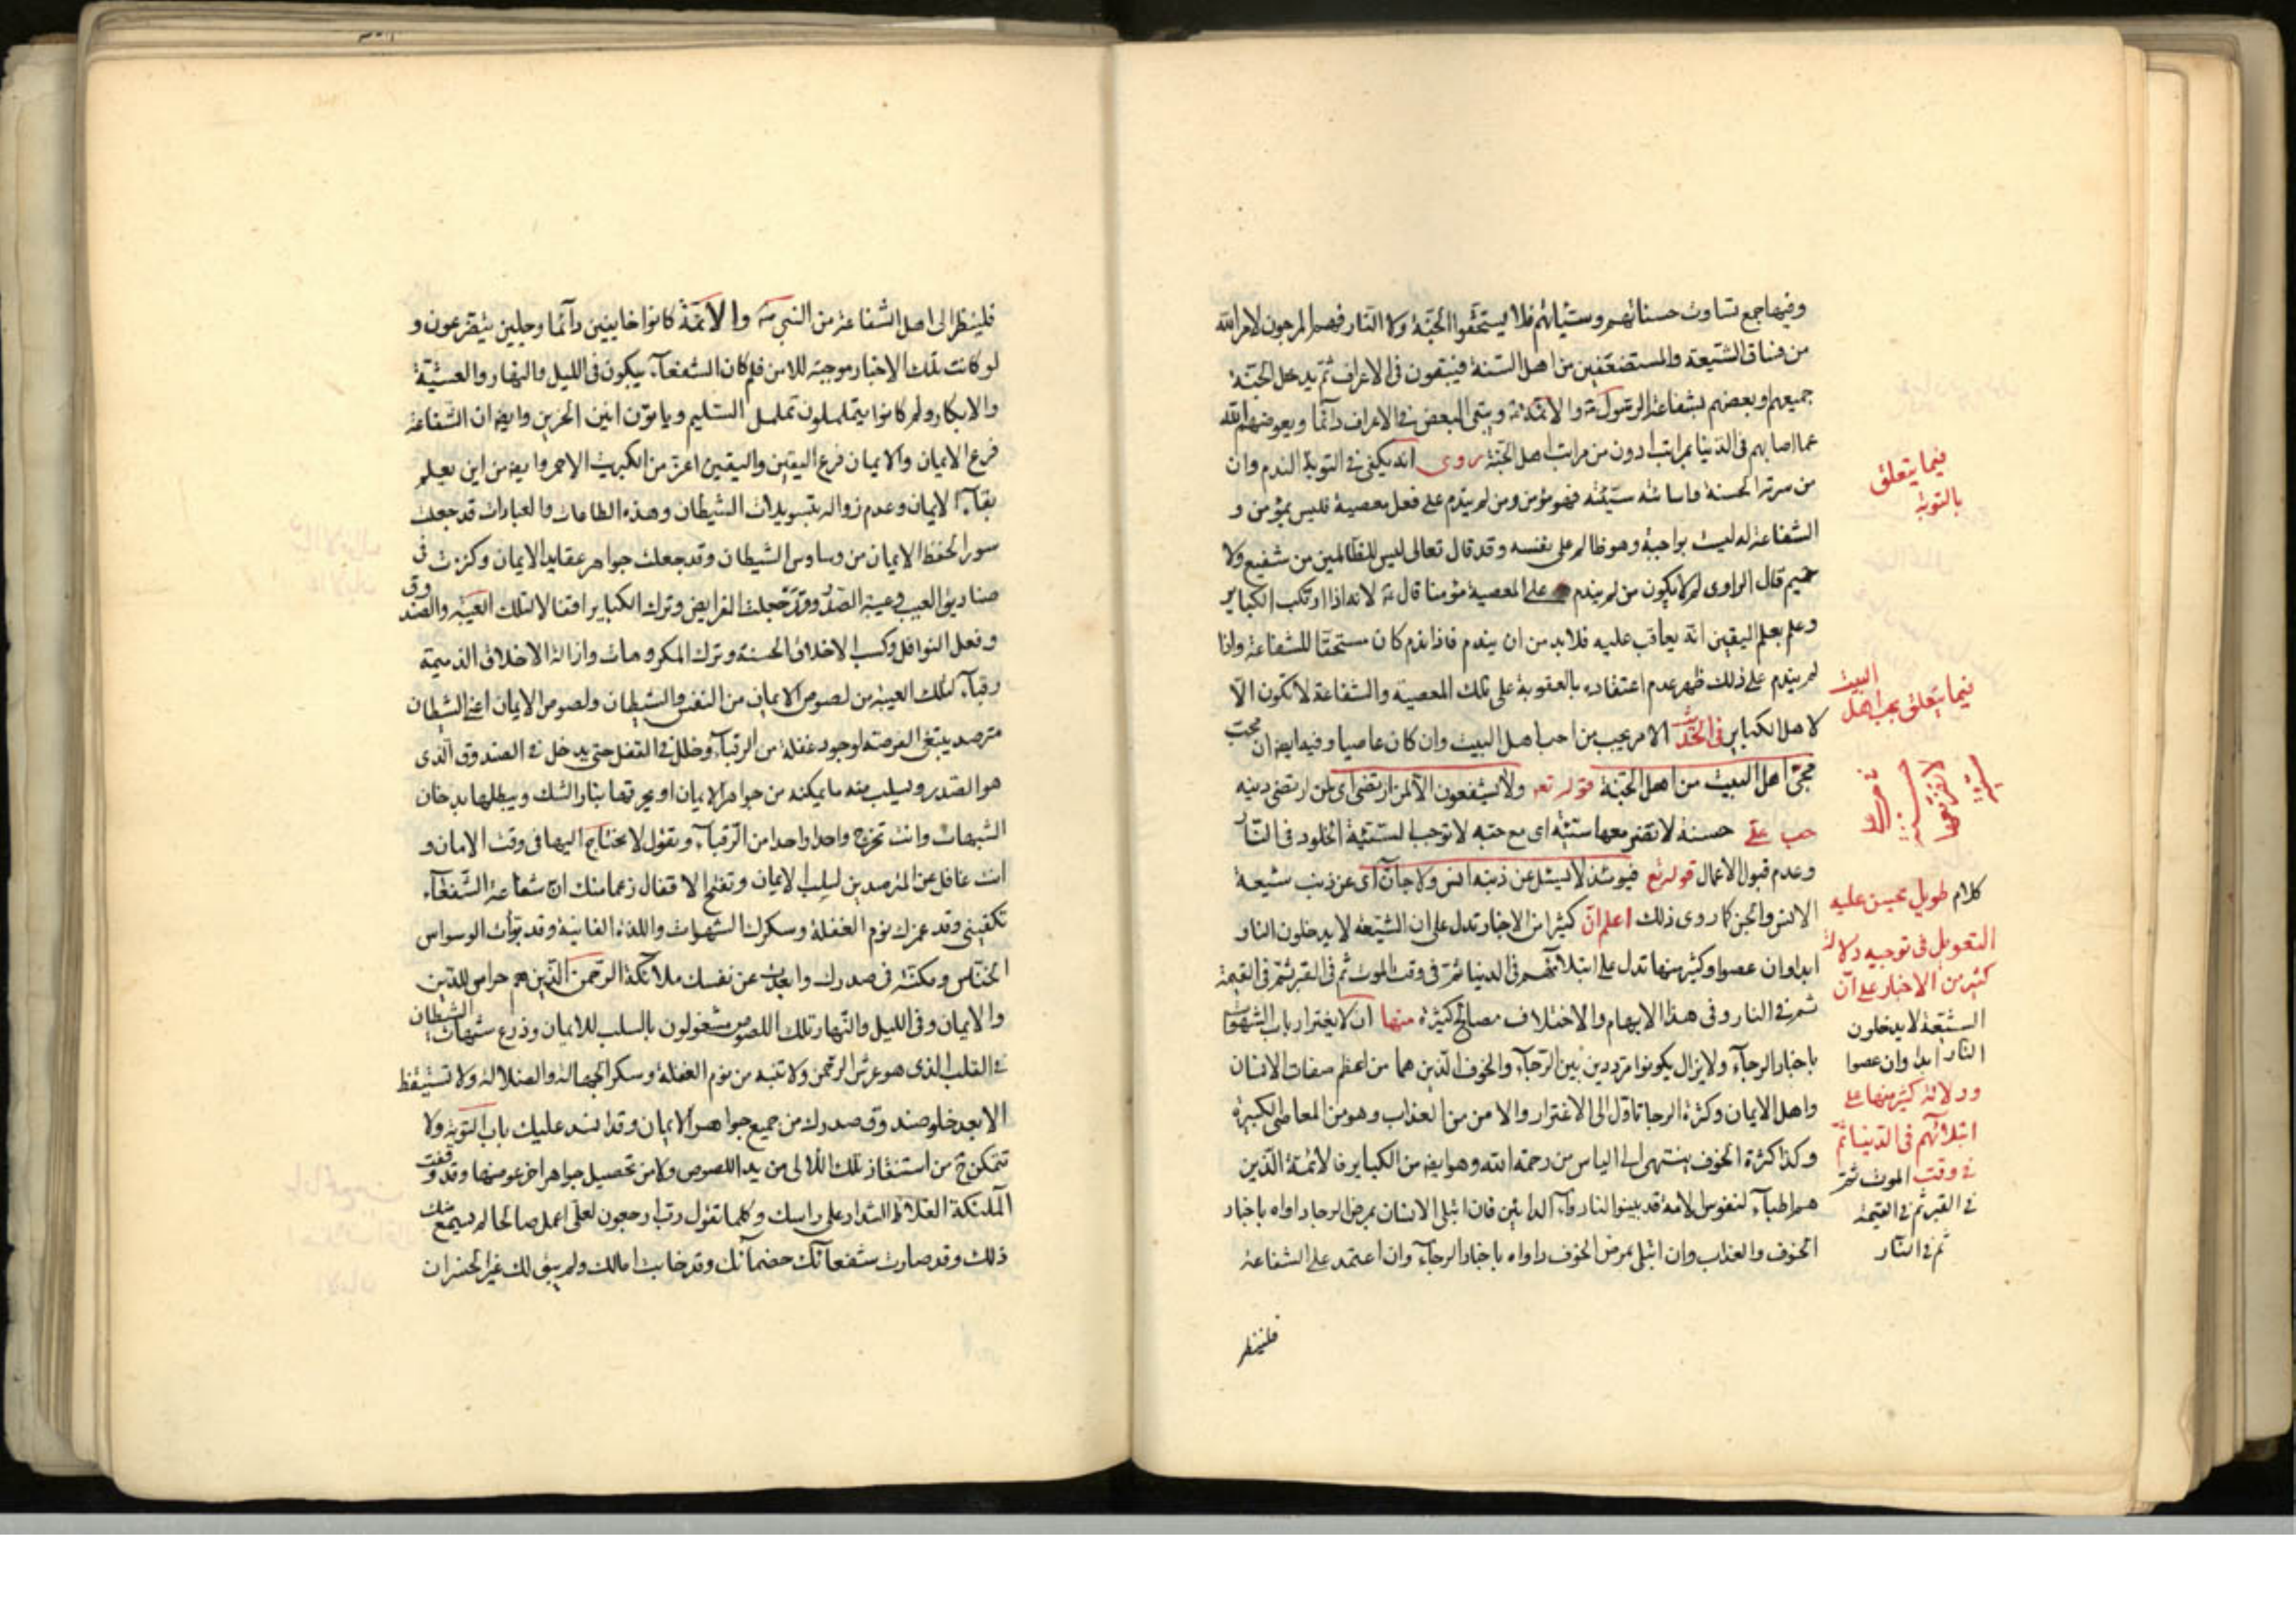 وفيها جمع تساوت حسناتهم وسيئاتهم فلا يستحقوا الجنة ولا النار فهم المرجون لامر الله
من فساق الشيعة والمستضعفين من اهل السنة فيبقون فى الاعراف ثم يدخل الجنة
جميعهم وبعضهم بشفاعة الرسول والائمة ويبقى البعض فى الاعراف دائما ويعوضهم الله
عما اصابهم فى الدنيا بمراتب ادون من مراتب اهل الجنة روى انه يكفى فى التوبة الندم وان
من سرته الحسنة وساءته سيئته فهو مؤمن ومن لم يندم على فعل معصية فليس بمؤمن و
الشفاعة له ليست بواجبة وهو ظالم على نفسه وقد قال تعالى ليس للظالمين من شفيع ولا
حميم قال الراوى لم لا يكون من لم يندم على المعصية مؤمنا قال لانه اذا ارتكب الكباير
وعلم بعلم اليقين انه يعاقب عليه فلابد من ان يندم فاذا ندم كان مستحقا للشفاعة واذا
لم يندم على ذلك ظهر عدم اعتقاده بالعقوبة على تلك المعصية والشفاعة لا تكون الا
لاهل الكباير فى الحديث الامر بحب من احب اهل البيت وان كان عاصيا وفيه ايضا ان محب
محبى اهل البيت من اهل الجنة قوله تع ولا يشفعون الا لمن ارتضى اى لمن ارتضى دينه
حب على حسنة لا تضر معها سيئة اى مع حبه لا توجب السيئة الخلود فى النار
وعدم قبول الاعمال قوله تع فيومئذ لا يسئل عن ذنبه انس ولا جان اى عن ذنب شيعة
الانس والجن كما روى ذلك اعلم ان كثيرا من الاخبار تدل على ان الشيعة لا يدخلون النار
ابدا وان عصوا وكثير منها تدل على ابتلائهم فى الدنيا ثم فى وقت الموت ثم فى القبر ثم فى القيمة
ثم فى النار وفى هذا الابهام والاختلاف مصالح كثيرة منها ان لا يغتر ارباب الشهوات
باخبار الرجاء ولا يزال يكونوا مترددين بين الرجاء والخوف الذين هما من اعظم صفات الانسان
واهل الايمان وكثرة الرجا تاول الى الاغترار والامن من العذاب وهو من المعاصى الكبيرة
وكذا كثرة الخوف ينتهى الى الياس من رحمة الله وهو ايضا من الكباير فالائمة الذين
هم اطباء لنفوس الامة قد بينوا النار دواء الدائين فان ابتلى الانسان بمرض الرجا داواه باخبار
الخوف والعذاب وان ابتلى بمرض الخوف داواه باخبار الرجاء وان اعتمد على الشفاعة
فلينظر
فيما يتعلق
بالتوبة
فيما يتعلق بحب اهل
البيت
حب على
حسنة
لا تضر معها
سيئة
كلام طويل يحسن عليه
التعويل فى توجيه دلالة
كثير من الاخبار على ان
الشيعة لا يدخلون
النار ابدا وان عصوا
ودلالة كثير منها على
ابتلائهم فى الدنيا ثم
فى وقت الموت ثم
فى القبر ثم فى القيمة
ثم فى النار
فلينظر الى اهل الشفاعة من النبى والائمة كانوا خايفين دائما وجلين يتضرعون و
لو كانت تلك الاخبار موجبة للامن فلم كان الشفعاء يبكون فى الليل والنهار والعشية
والابكار ولم كانوا يتململون تململ السليم ويانون انين الحزين وايضا ان الشفاعة
فرع الايمان والايمان فرع اليقين واليقين اعز من الكبريت الاحمر وايضا من اين يعلم
بقاء الايمان وعدم زواله بتسويلات الشيطان وهذه الطاعات والعبادات قد جعلت
سورا لحفظ الايمان من وساوس الشيطان وقد جعلت جواهر عقايد الايمان وكنزت فى
صناديق العيب وعيبة الصدور وقد جعلت الفرايض وترك الكباير اقفالا لتلك العيبة والصندوق
وفعل النوافل وكسب الاخلاق الحسنة وترك المكروهات وازالة الاخلاق الذميمة
رقباء لتلك العيبة من لصوص الايمان من النفس والشيطان ولصوص الايمان اعنى الشيطان
مترصد يبتغى الفرصة لوجود غفلة من الرقباء وخلل فى القفل حتى يدخل فى الصندوق الذى
هو الصدر وليسلب منه ما يمكنه من جواهر الايمان او يحرقها بنار الشك ويبطلها بدخان
الشبهات وانت تخرج واحدا واحدا من الرقباء وتقول لا نحتاج اليها فى وقت الامان و
انت غافل عن المترصدين لسلب الايمان وتفتح الاقفال زعما منك ان شفاعة الشفعاء
تكفينى وقد غرك نوم الغفلة وسكرك الشهوات واللذة الفانية وقد بوأت الوسواس
الخناس ومكنته فى صدرك وابعدت عن نفسك ملائكة الرحمن الذين هم حراس للدين
والايمان وفى الليل والنهار تلك اللصوص مشغولون بالسلب للايمان وزرع شبهات الشيطان
فى القلب الذى هو عرش الرحمن ولا تنبه من نوم الغفلة وسكر الجهالة والضلالة ولا تستيقظ
الا بعد خلو صندوق صدرك من جميع جواهر الايمان وقد انسد عليك باب التوبة ولا
تتمكن ح من استنقاذ تلك اللالى من يد اللصوص ولا من تحصيل جواهر اخر عوضها وقد وقفت
الملئكة الغلاظ الشداد على راسك وكلما تقول رب ارجعون لعلى اعمل صالحا لم يسمع منك
ذلك وقد صارت شفعائك خصمائك وقد خابت امالك ولم يبق لك غير الخسران